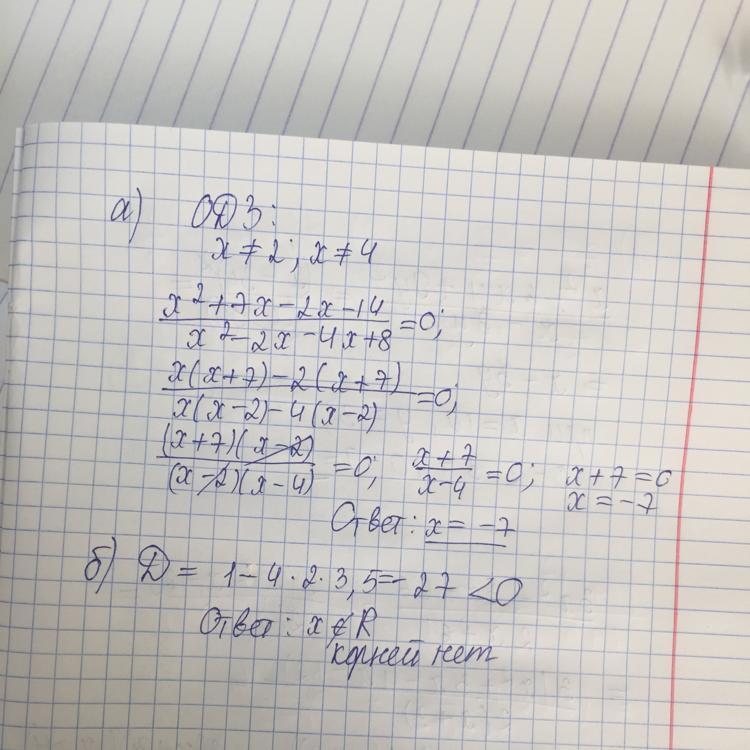 а) ОДЗ:
x ≠ 2; x ≠ 4
x² + 7x - 2x - 14 / x² - 2x - 4x + 8 = 0;
x(x+7) - 2(x+7) / x(x-2) - 4(x-2) = 0;
(x+7)(x-2) / (x-2)(x-4) = 0; x+7 / x-4 = 0; x+7 = 0
x = -7
Ответ: x = -7
б) D = 1 - 4·2·3,5 = -27 < 0
Ответ: x ∉ R
корней нет